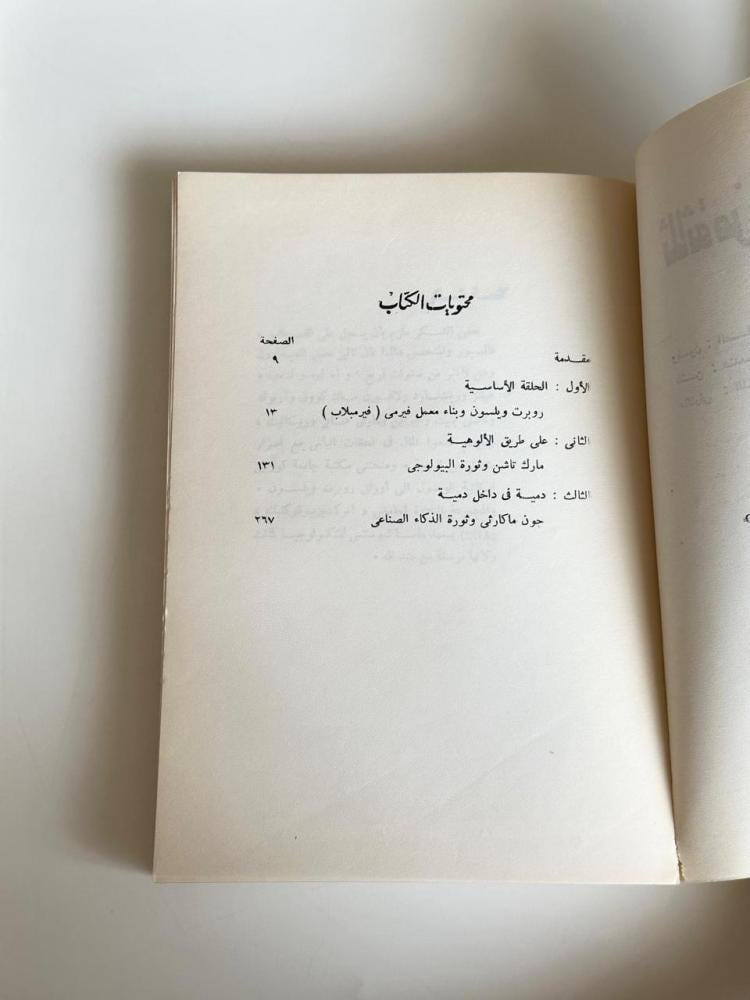 محتويات الكتاب
الصفحة
مقدمة ٩
الأول : الحلقة الأساسية
روبرت ويلسون وبناء معمل فيرمى ( فيرمبلاب ) ١٣
الثانى : على طريق الألوهية
مارك تاشن وثورة البيولوجى ١٣١
الثالث : دمية فى داخل دمية
جون ماكارثى وثورة الذكاء الصناعى ٢٦٧